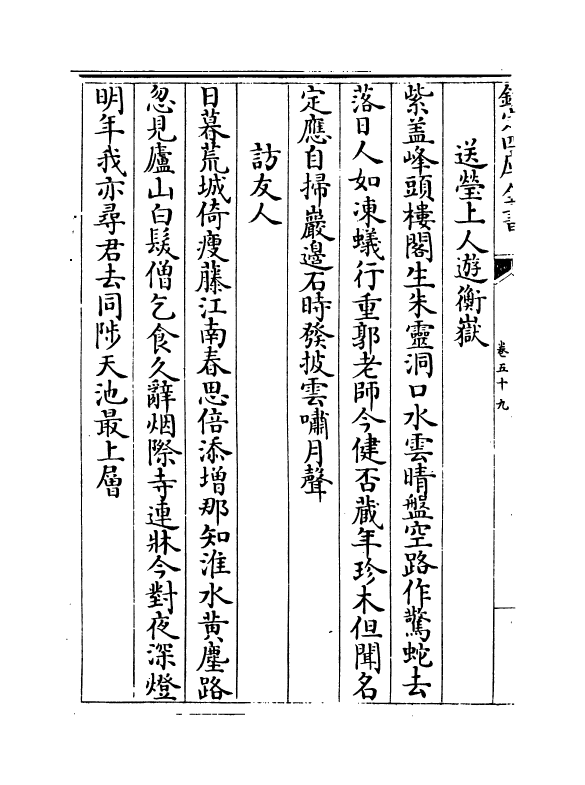 欽定四庫全書
卷五十九
送瑩上人遊衡嶽
紫盖峰頭樓閣生朱靈洞口水雲晴盤空路作驚蛇去
落日人如凍蟻行重郭老師今健否蔵年珍木但聞名
定應自掃巖邉石時發披雲嘯月聲
訪友人
日暮荒城倚瘦藤江南春思倍添增那知淮水黄塵路
忽見廬山白髮僧乞食久辭烟際寺連牀今對夜深燈
明年我亦尋君去同陟天池最上層